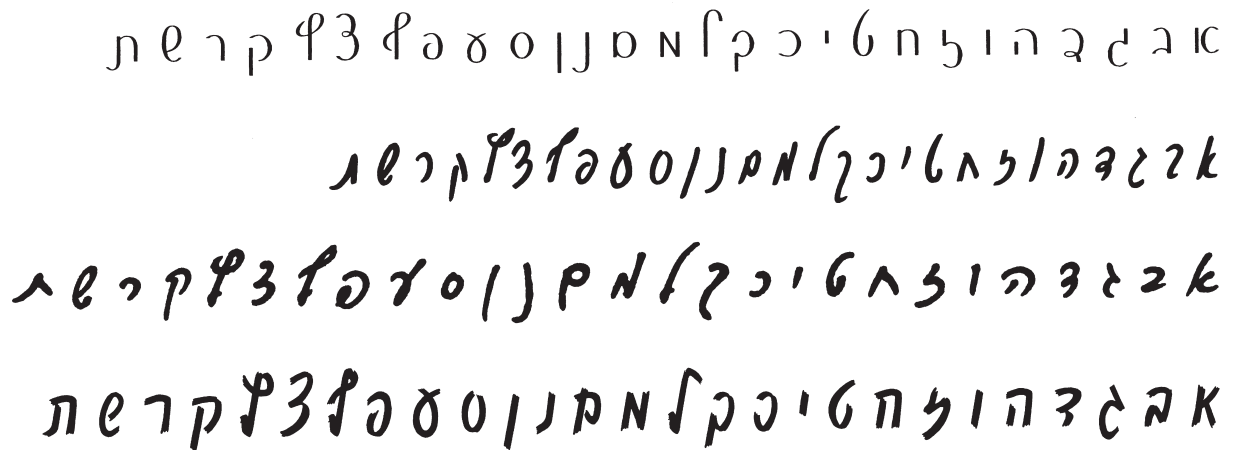 א ב ג ד ה ו ז ח ט י כ ך ל מ ם נ ן ס ע פ ף צ ץ ק ר ש ת
א ב ג ד ה ו ז ח ט י כ ך ל מ ם נ ן ס ע פ ף צ ץ ק ר ש ת
א ב ג ד ה ו ז ח ט י כ ך ל מ ם נ ן ס ע פ ף צ ץ ק ר ש ת
א ב ג ד ה ו ז ח ט י כ ך ל מ ם נ ן ס ע פ ף צ ץ ק ר ש ת